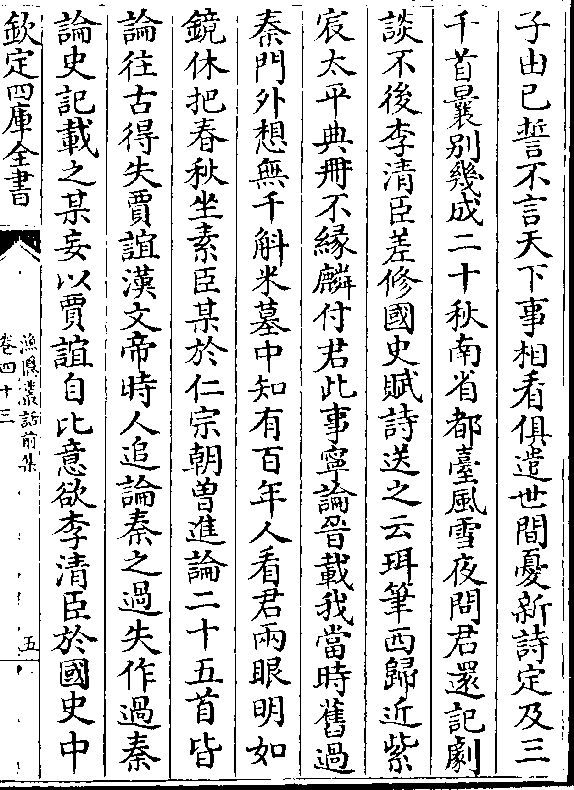 子由已誓不言天下事相看俱遣世間憂新詩定及三
千首曩别幾成二十秋南省都臺風雪夜問君還記劇
談不後李清臣差修國史賦詩送之云珥筆西歸近紫
宸太平典冊不縁麟付君此事寧論晉載我當時舊過
秦門外想無千斛米墓中知有百年人看君兩眼明如
鏡休把春秋坐素臣某於仁宗朝曽進論二十五首皆
論往古得失賈誼漢文帝時人追論秦之過失作過秦
論史記載之某妄以賈誼自比意欲李清臣於國史中
欽定四庫全書
漁隱叢話前集
卷四十三
五